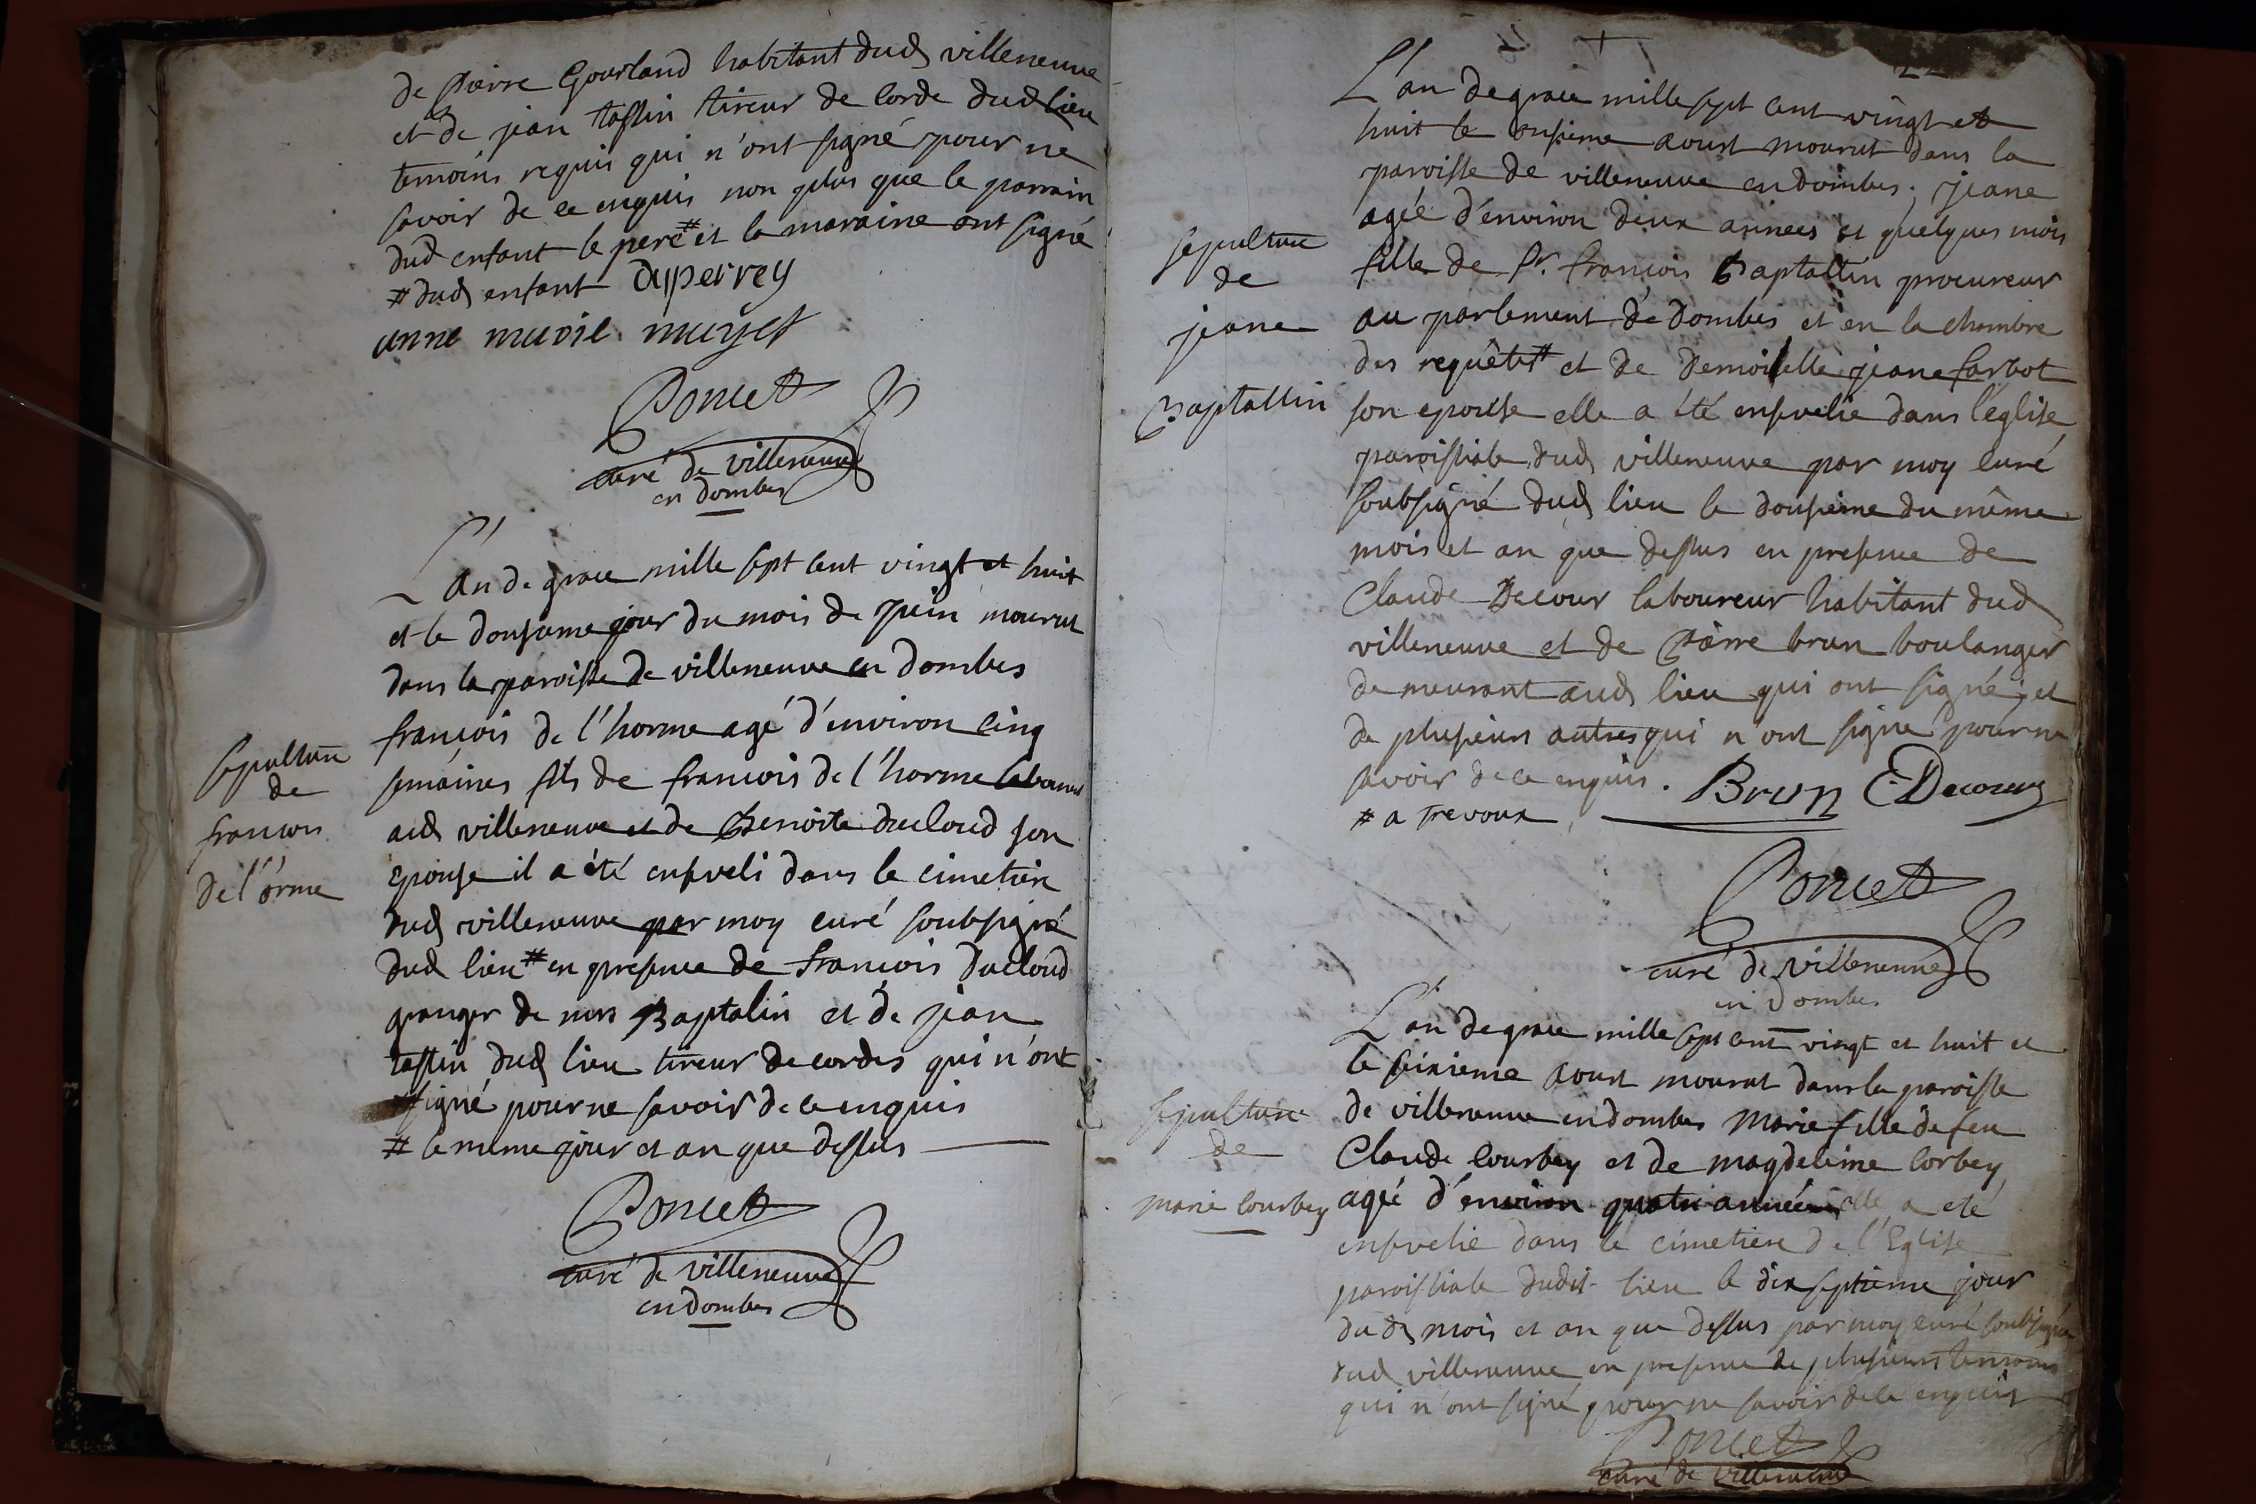 de Pierre Gourland habitant dud villeneuve
et de jean tassin tireur de corde dud lieu
temoins requis qui n'ont signé pour ne
savoir de ce enquis non plus que le parrain
dud enfant le pere # et la maraine ont signé
# dud enfant duperrey
anne marie muyet
Poncet
curé de villeneuve
en dombes
L'an de grace mille sept cent vingt et huit
et le dousieme jour du mois de juin mourut
dans la paroisse de villeneuve en dombes
françois de l'horme agé d'environ cinq
semaines fils de francois de l'horme laboureur
aud villeneuve et de Benoite ducloud son
epouse il a été enseveli dans le cimetiere
dud villeneuve par moy curé soubsigné
dud lieu # en presence de françois Ducloud
granger de mrs Baptalin et de jean
tassin dud lieu tireur de cordes qui n'ont
signé pour ne savoir de ce enquis
# le meme jour et an que dessus
Poncet
curé de villeneuve
en dombes
sepulture
de
francois
de l'orme
22
L'an de grace mille sept cent vingt et
huit le onsieme aoust mourut dans la
paroisse de villeneuve en dombes. jeane
agée d'environ deux années et quelques mois
fille de sr. françois Baptallin procureur
au parlement de dombes et en la chambre
des requêtes # et de demoiselle jeane farbot
son epouse elle a été ensevelie dans l'eglise
paroissiale dud villeneuve par moy curé
soubsigné dud lieu le dousieme du même
mois et an que dessus en presence de
Claude Decour laboureur habitant dud
villeneuve et de Pierre brun boulanger
demeurant aud lieu qui ont signé et
de plusieurs autres qui n'ont signé pour ne
savoir de ce enquis. Brun C Decour
# a Trevoux
Poncet
curé de villeneuve
en Dombes
sepulture
de
jeane
Baptallin
L'an de grace mille sept cent vingt et huit et
le seisieme aoust mourut dans la paroisse
de villeneuve en dombes Marie fille de feu
Claude Courbey et de magdeleine Corbey
agée d'environ quatre années elle a eté
ensevelie dans le cimetiere de l'Eglise
paroissiale dudit lieu le dix septieme jour
dud mois et an que dessus par moy curé soubsigné
dud villeneuve en presence de plusieurs temoins
qui n'ont signé pour ne savoir de ce enquis
Poncet
curé de villeneuve
sepulture
de
marie Courbey